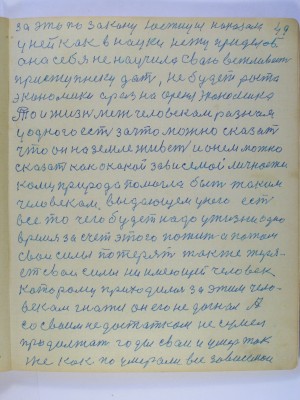 за это по закону
49
у ней как в науки
она себя не научила свою
преступнику дат, не будет
экономики сразу на
То и жизнь меж человеком разная
у одного ест за что можно сказат
что он на земле живет и о нем можно
сказат как о какой зависемой личности
кому природа помогла быт таким
человеком, выдающем у него ест
все то чего будет надо у жизни одно
время за счет этого пожит а потом
свои силы потерят также
свои силы не имеющей человек
которому приходилос за этим чело-
веком гнатся он его не догнал А
со своим недостатком не сумел
продолжат годы свои и умер так
же как по умерали все зависемой